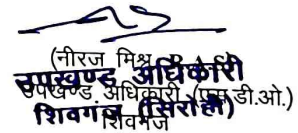 (नीरज मिश्र
उपखण्ड अधिकारी
उपखण्ड अधिकारी (एस.डी.ओ.)
शिवगंज (सिरोही)
शिवगंज